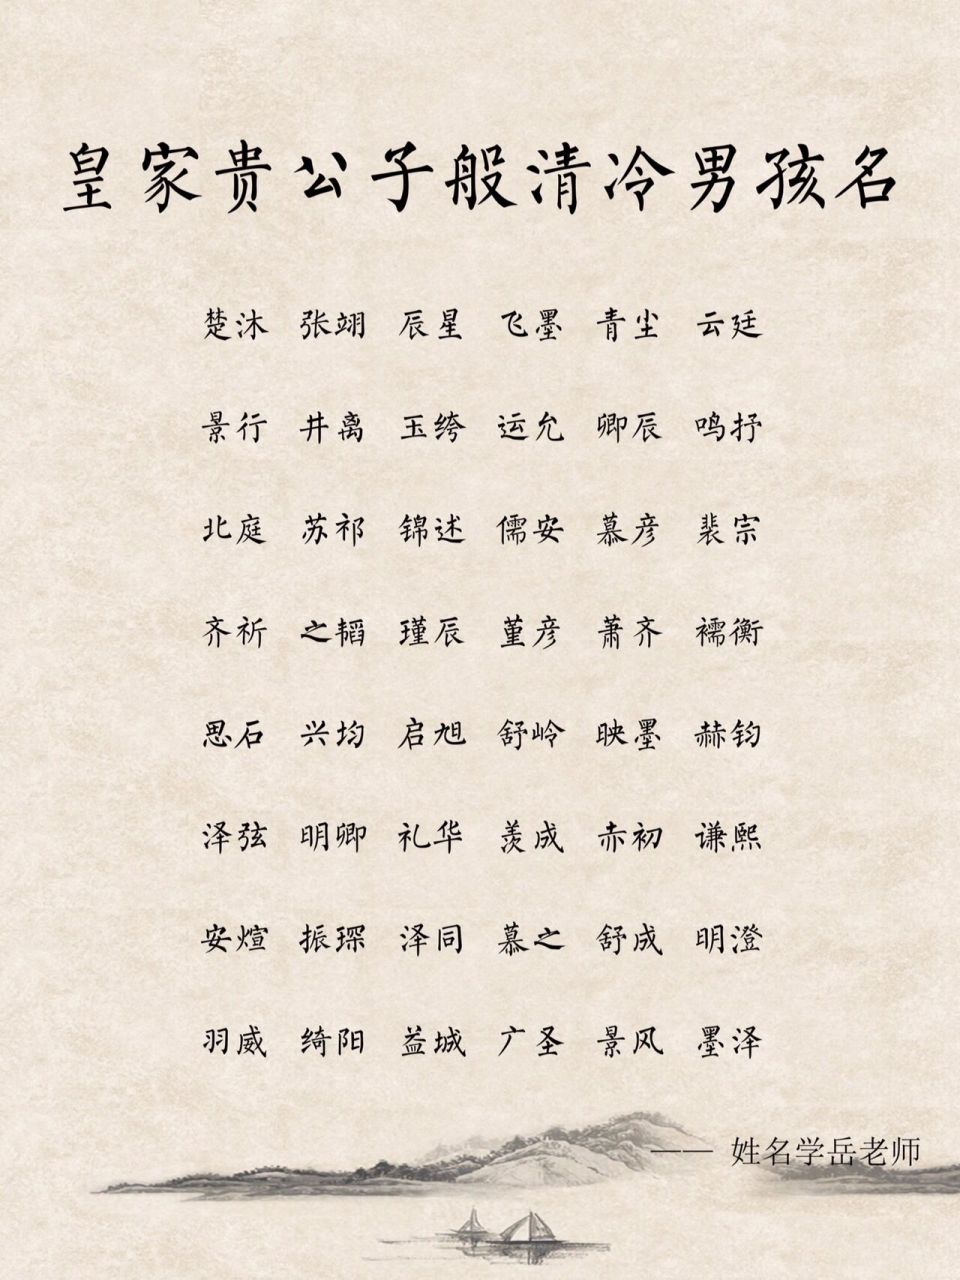 皇家贵公子般清冷男孩名
楚沐 张翊 辰星 飞墨 青尘 云廷
景行 井离 玉绔 运允 卿辰 鸣抒
北庭 苏祁 锦述 儒安 慕彦 裴宗
齐祈 之韬 瑾辰 堇彦 萧齐 襦衡
思石 兴均 启旭 舒岭 映墨 赫钧
泽弦 明卿 礼华 羡成 赤初 谦熙
安煊 振琛 泽同 慕之 舒成 明澄
羽威 绮阳 益城 广圣 景风 墨泽
—— 姓名学岳老师